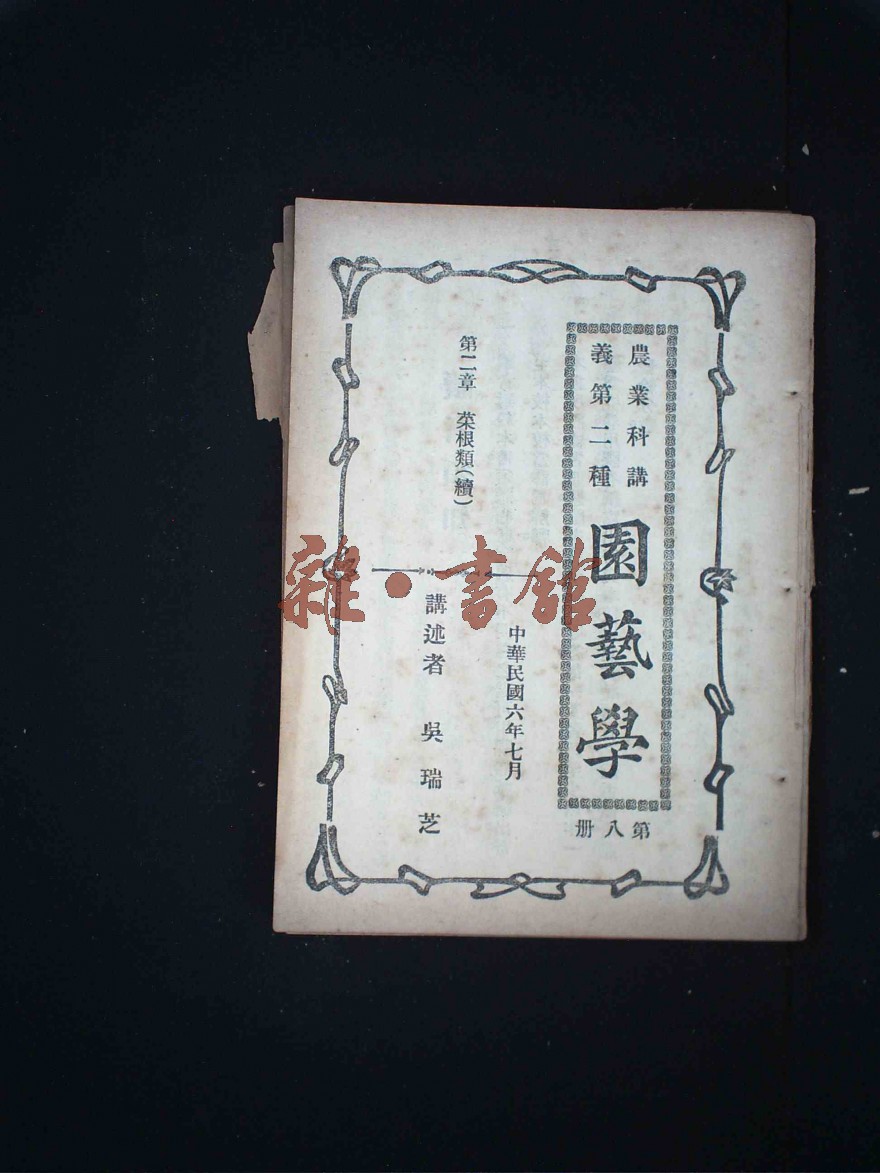 農業科講
義第二種
園藝學
第八册
中華民國六年七月
第二章　菜根類(續)
講述者　吳瑞芝
雜·書館